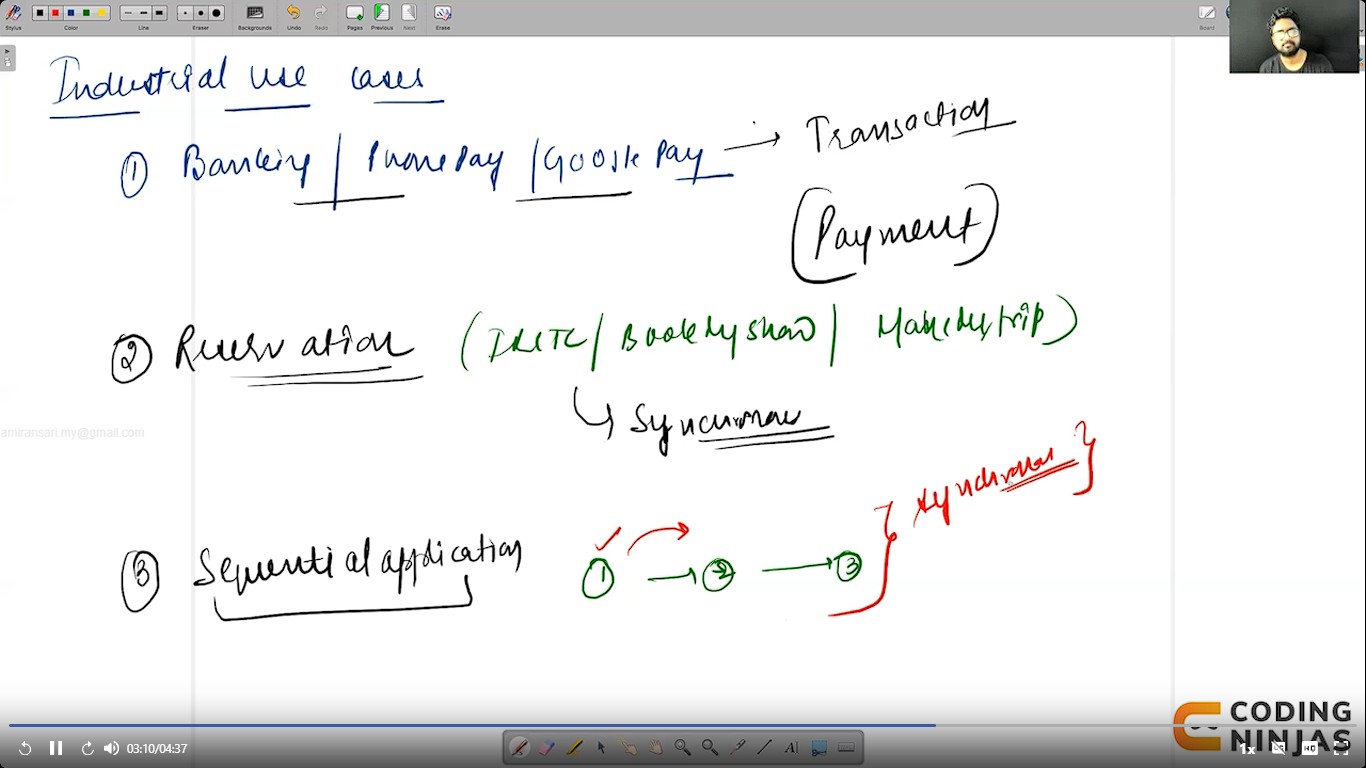 Stylus Color Line Eraser Backgrounds Undo Redo Pages Previous Next Erase Board
Industrial use cases
① Banking / PhonePay / Google Pay → Transaction
(Payment)
② Reservation (IRCTC / BookMyShow / MakeMyTrip)
↳ Synchronous
amiransari.my@gmail.com
③ Sequential application ① → ② → ③ } Synchronous }
CODING
NINJAS
03:10/04:37 1x HD